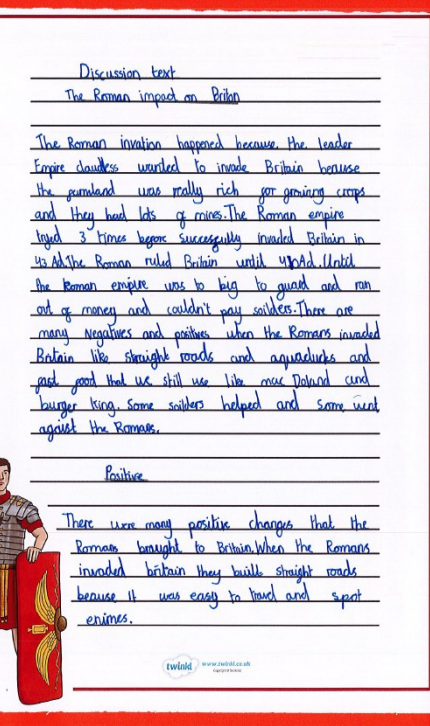 Discussion text
The Roman impact on Britan
The Roman invation happened because the leader
Empire claudless wanted to invade Britain beruse
the farmland was really rich for growing crops
and they had lots of mines. The Roman empire
tryed 3 times before successfully invaded Britain in
43 Ad. The Roman ruled Britain until 410Ad. Until
the Roman empire was to big to guard and ran
out of money and couldn't pay soilders. There are
many negatives and positives when the Romans invaded
Britain like straight roads and aquaducks and
fast food that we still use like mac Donald and
burger king. Some soilders helped and some went
against the Romans.
Positive
There were many positive changes that the
Romans braught to Britain. When the Romans
invaded britain they built straight roads
beause it was easy to travel and spot
enimes.
twinkl www.twinkl.co.uk